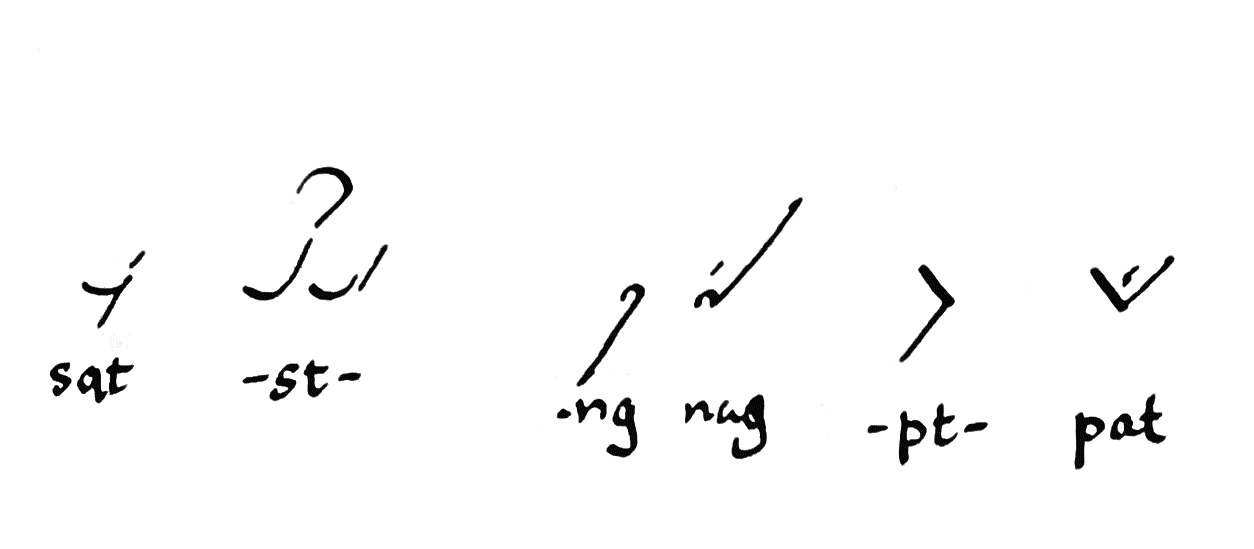 sat -st- -ng nag -pt- pat